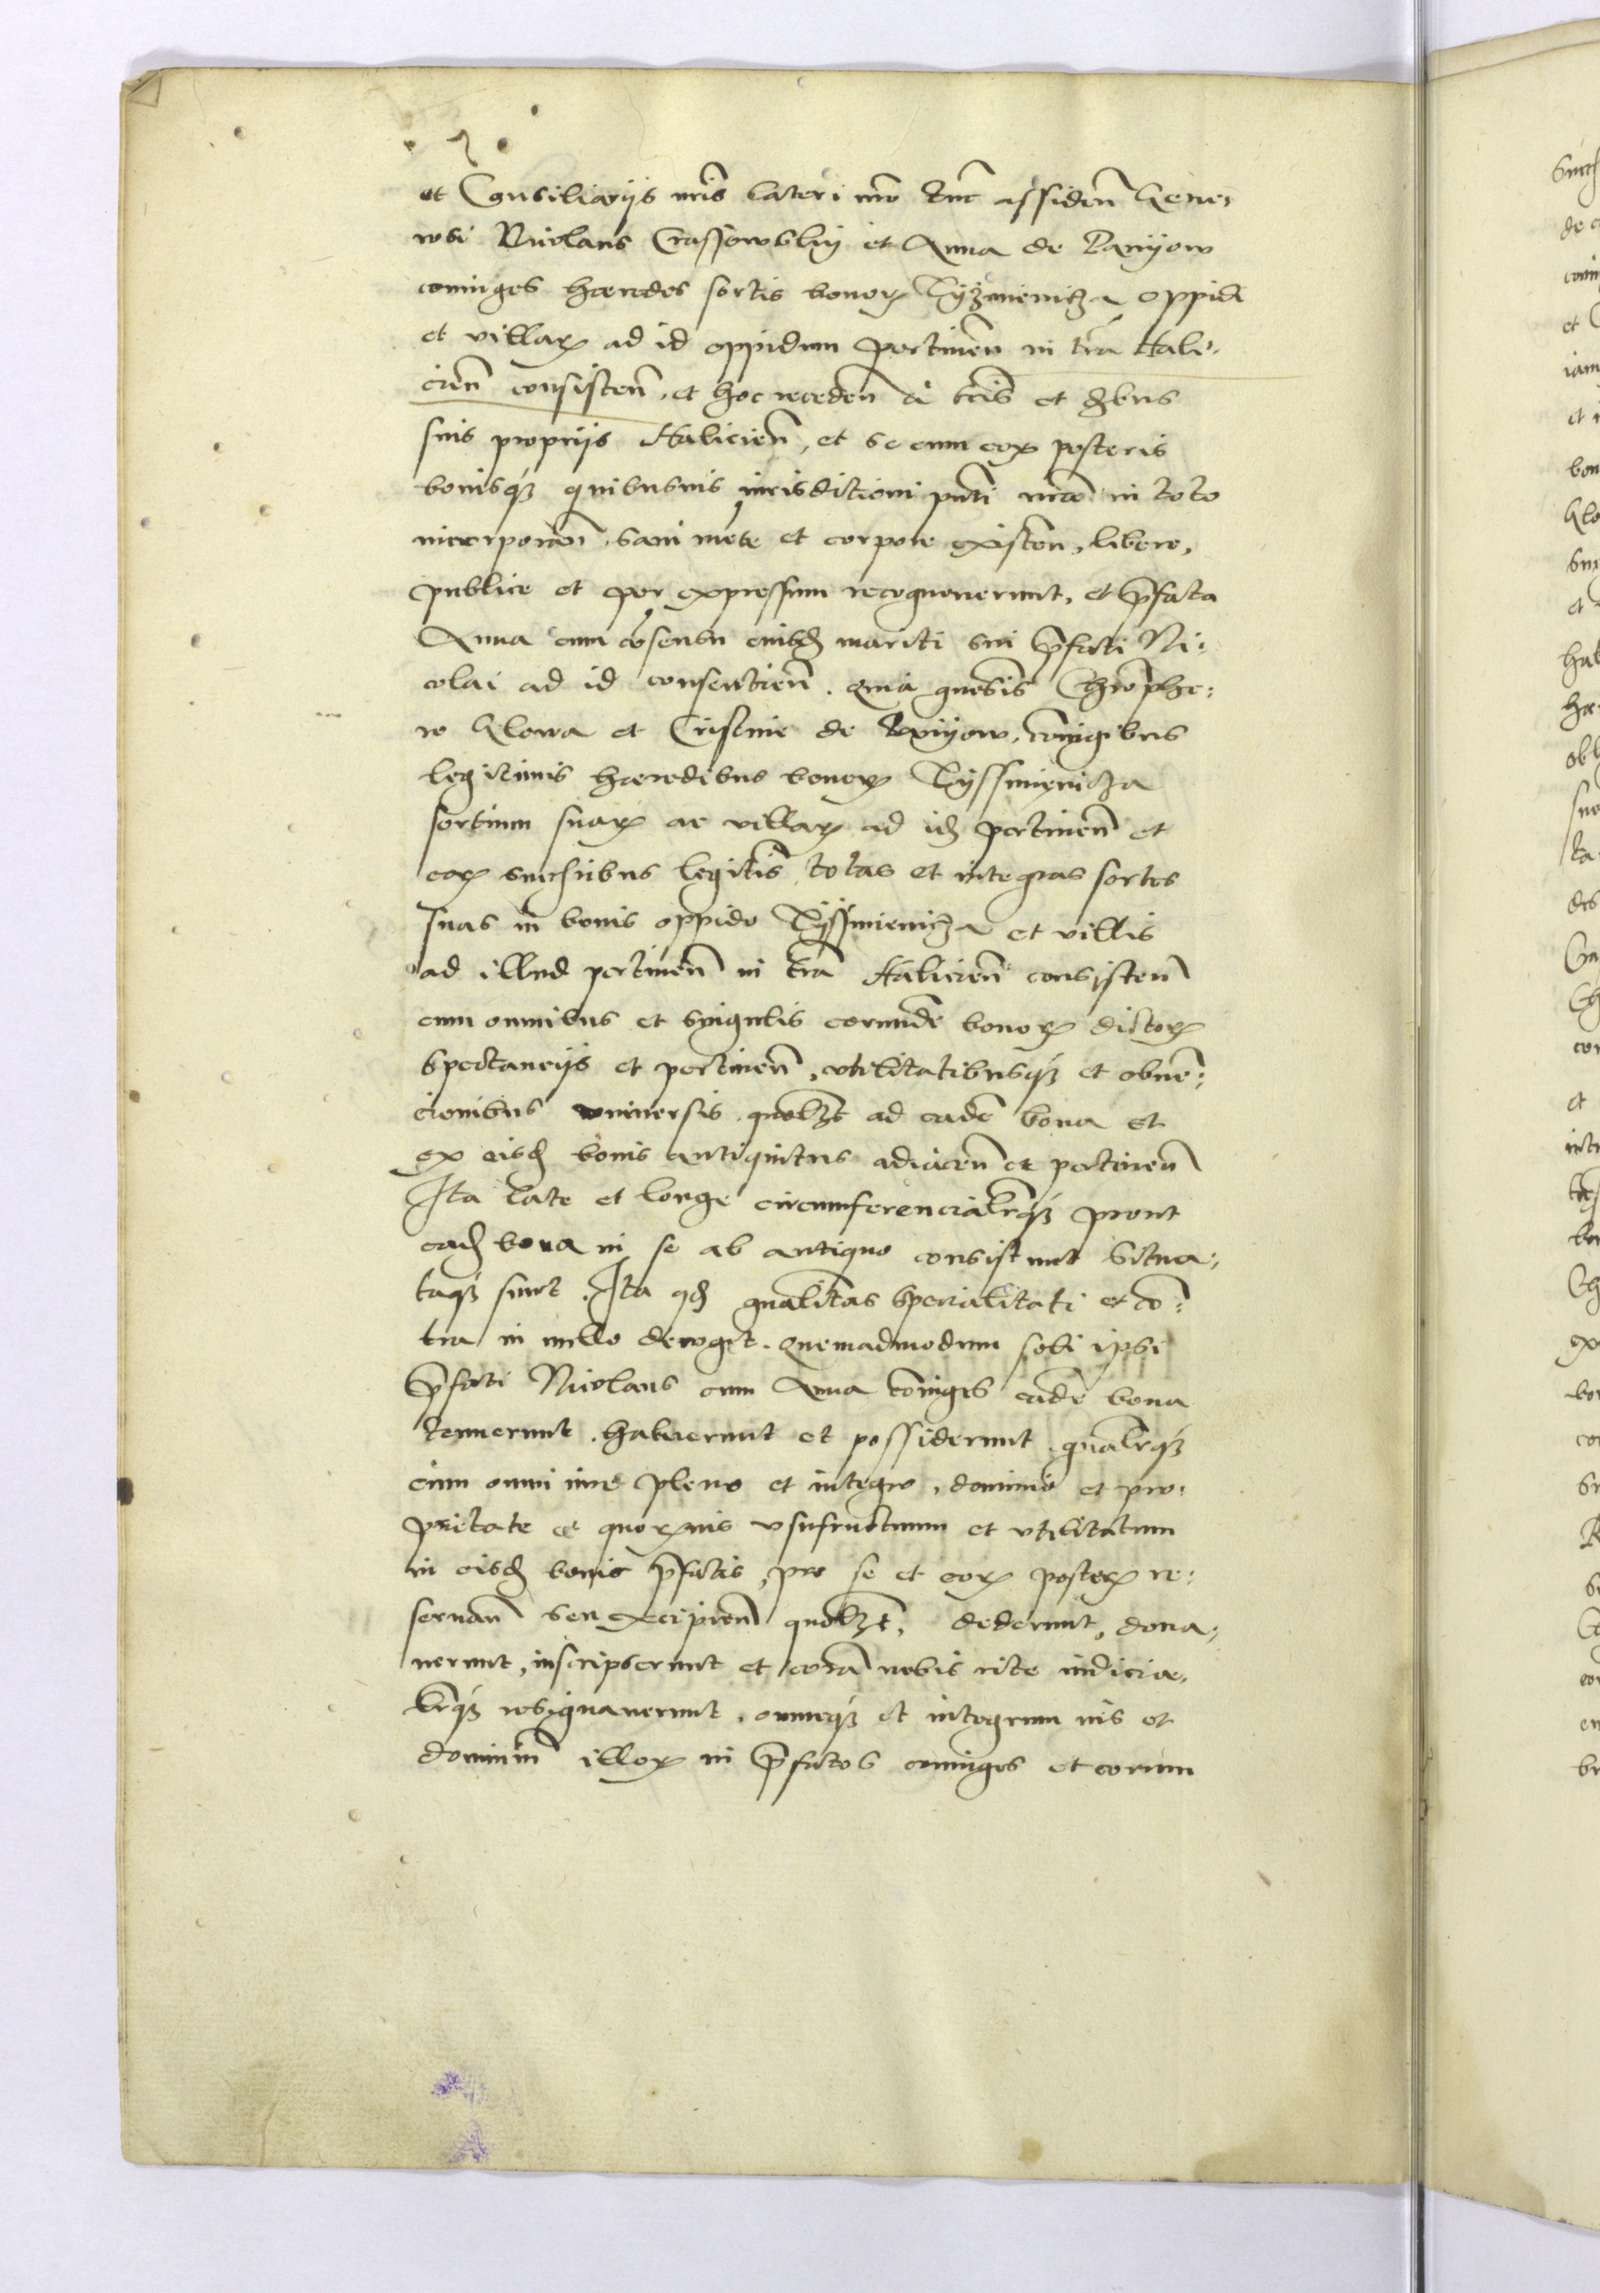 et Consiliarijs nris lateri nro tunc assiden Gene,
rosi Nicolaus Crassowskij et Anna de
coniuges haeredes sortis bonoꝝ Tyzmienicza oppidi
et villaꝝ ad id oppidum pertinen in tra Hali,
cien consisten, et hoc receden a tris et
suis proprijs Halicien, et se cum eoꝝ posteris
bonisqꝫ quibusuis iurisdictioni pnti in toto
incorporan, sani mete et corpore existen, libere,
publice et per expressum recognouerunt, et p̄fata
Anna cum cosensu eiusd mariti sui p̄fati Ni:
colai ad id consentien. quia gnosis Chrophe:
ro Klowa et Cristine de coniugibus
legitimis haeredibus bonoꝝ Tyssmienicza
sortium suaꝝ ac villaꝝ ad id pertinen et
eoꝝ successibus legitis totas et integras sortes
suas in bonis oppido Tyssmienicza et villis
ad illud pertinen in tra Halicien consisten
cum omnibus et singulis eorunde bonoꝝ dictoꝝ
spectancijs et pertinen, vtilitatibusqꝫ et obuen:
cionibus vniuersis quolꝫt ad eade bona et
ex eisd bonis antiquitus adiacen et pertinen
Ita late et longe circumferencialrqꝫ prout
ead bona in se ab antiquo consistunt situa,
taqꝫ sunt. Ita qd gnalitas specialitati et co:
tra in nullo deroget. quemadmodum soli ipsi
p̄fati Nicolaus cum Anna coniuges eade bona
tenuerunt, habuerunt et possiderunt, qualrqꝫ
cum omni iure pleno et integro, dominio et pro:
prietate et quoꝝuis vsufructuum et vtilitatum
in eisd bonis p̄fatis, pro se et eoꝝ posteꝝ re:
seruan seu excipien quolꝫt, dederunt, dona,
uerunt, inscripserunt et cora nobis rite iudicia,
lrqꝫ resignauerunt, omneqꝫ et integrum ius et
dominiu illoꝝ in p̄fatos coniuges et eorum